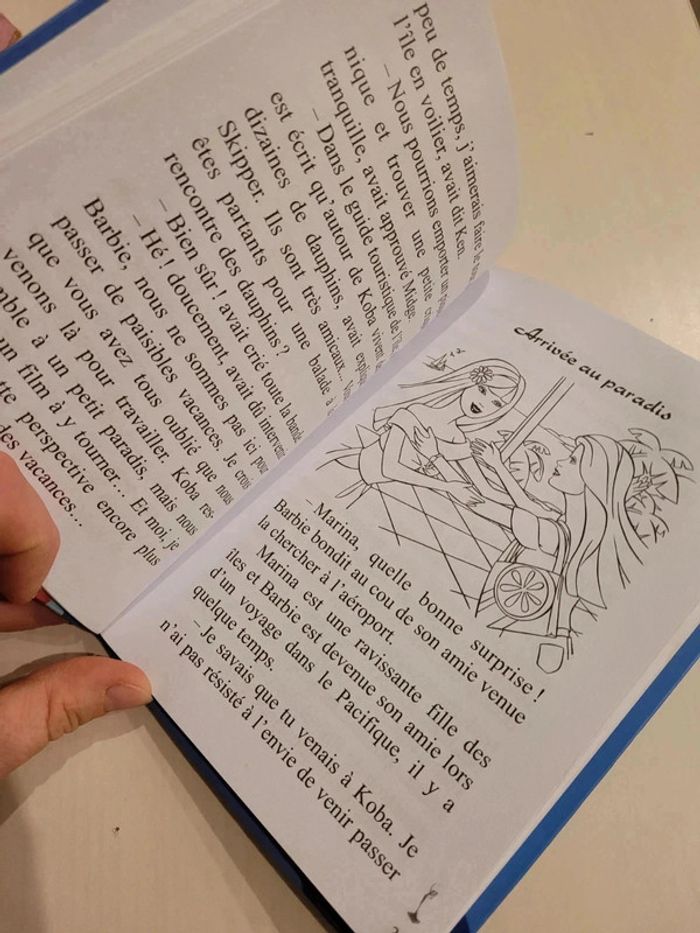 peu de temps, j'aimerais faire le
l'île en voilier, avait dit Ken.
– Nous pourrions emporter un
nique et trouver une petite
tranquille, avait approuvé Midge.
– Dans le guide touristique de
est écrit qu'autour de Koba vivent
dizaines de dauphins, avait
Skipper. Ils sont très amicaux...
êtes partants pour une balade à
rencontre des dauphins?
– Bien sûr! avait crié toute la bande.
– Hé! doucement, avait dû intervenir
Barbie, nous ne sommes pas ici pour
passer de paisibles vacances. Je crois
que vous avez tous oublié que nous
venons là pour travailler. Koba res-
à un petit paradis, mais nous
un film à y tourner... Et moi, je
perspective encore plus
des vacances...
Arrivée au paradis
– Marina, quelle bonne surprise!
Barbie bondit au cou de son amie venue
la chercher à l'aéroport.
Marina est une ravissante fille des
îles et Barbie est devenue son amie lors
d'un voyage dans le Pacifique, il y a
quelque temps.
– Je savais que tu venais à Koba. Je
n'ai pas résisté à l'envie de venir passer